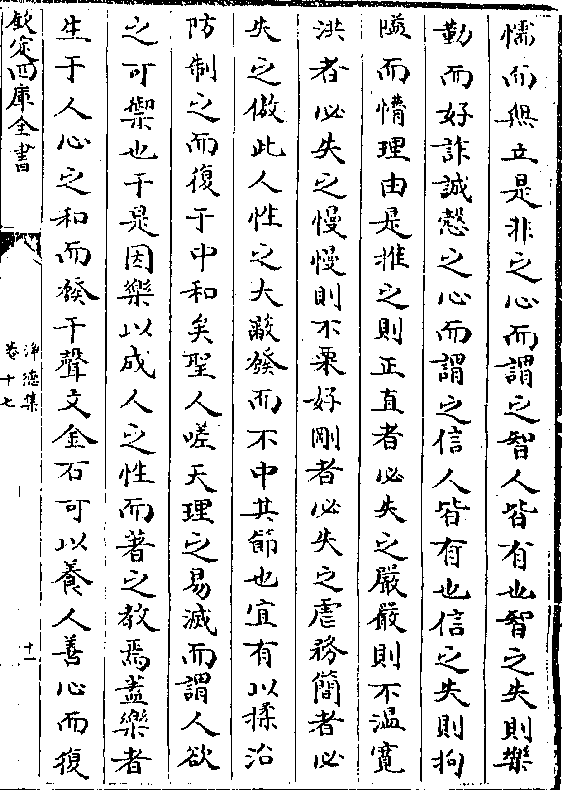 懦而無立是非之心而謂之智人皆有也智之失則樂
勤而好詐誠慤之心而謂之信人皆有也信之失則拘
隘而懵理由是推之則正直者必失之嚴嚴則不溫寛
洪者必失之慢慢則不栗好剛者必失之虐務簡者必
失之傲此人性之大蔽發而不中其節也宜有以揉治
防制之而復于中和矣聖人嗟天理之易滅而謂人欲
之可禦也于是因樂以成人之性而著之教焉蓋樂者
生于人心之和而發于聲文金石可以養人善心而復
欽定四庫全書
淨德集
卷十七
十一